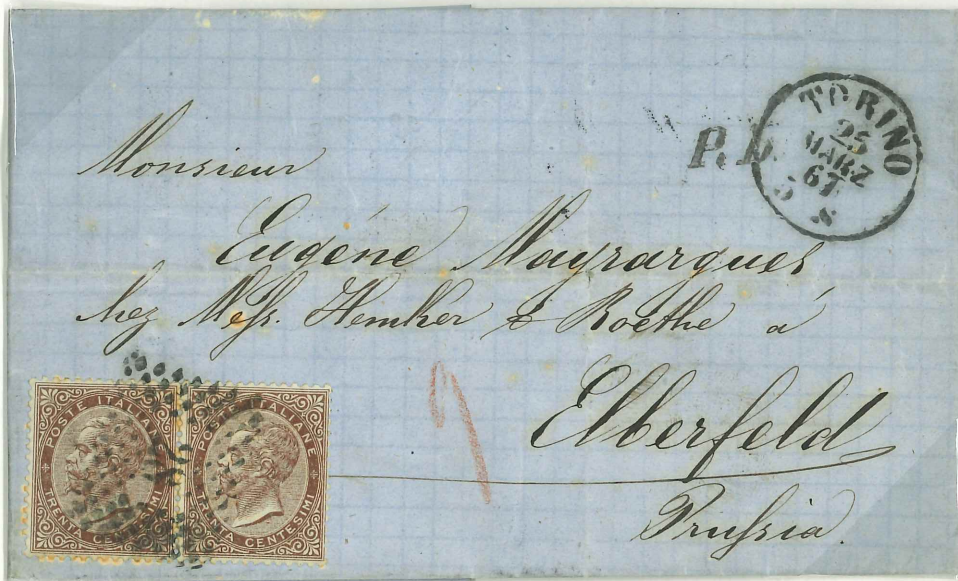 Monsieur
P.D.
TORINO
25
MARZ
67
5 S
Eugéne Mayrargues
chez Mess. Hemker & Roethe à
Elberfeld
Prussia.
POSTE ITALIANE
TRENTA CENTESIMI
POSTE ITALIANE
TRENTA CENTESIMI